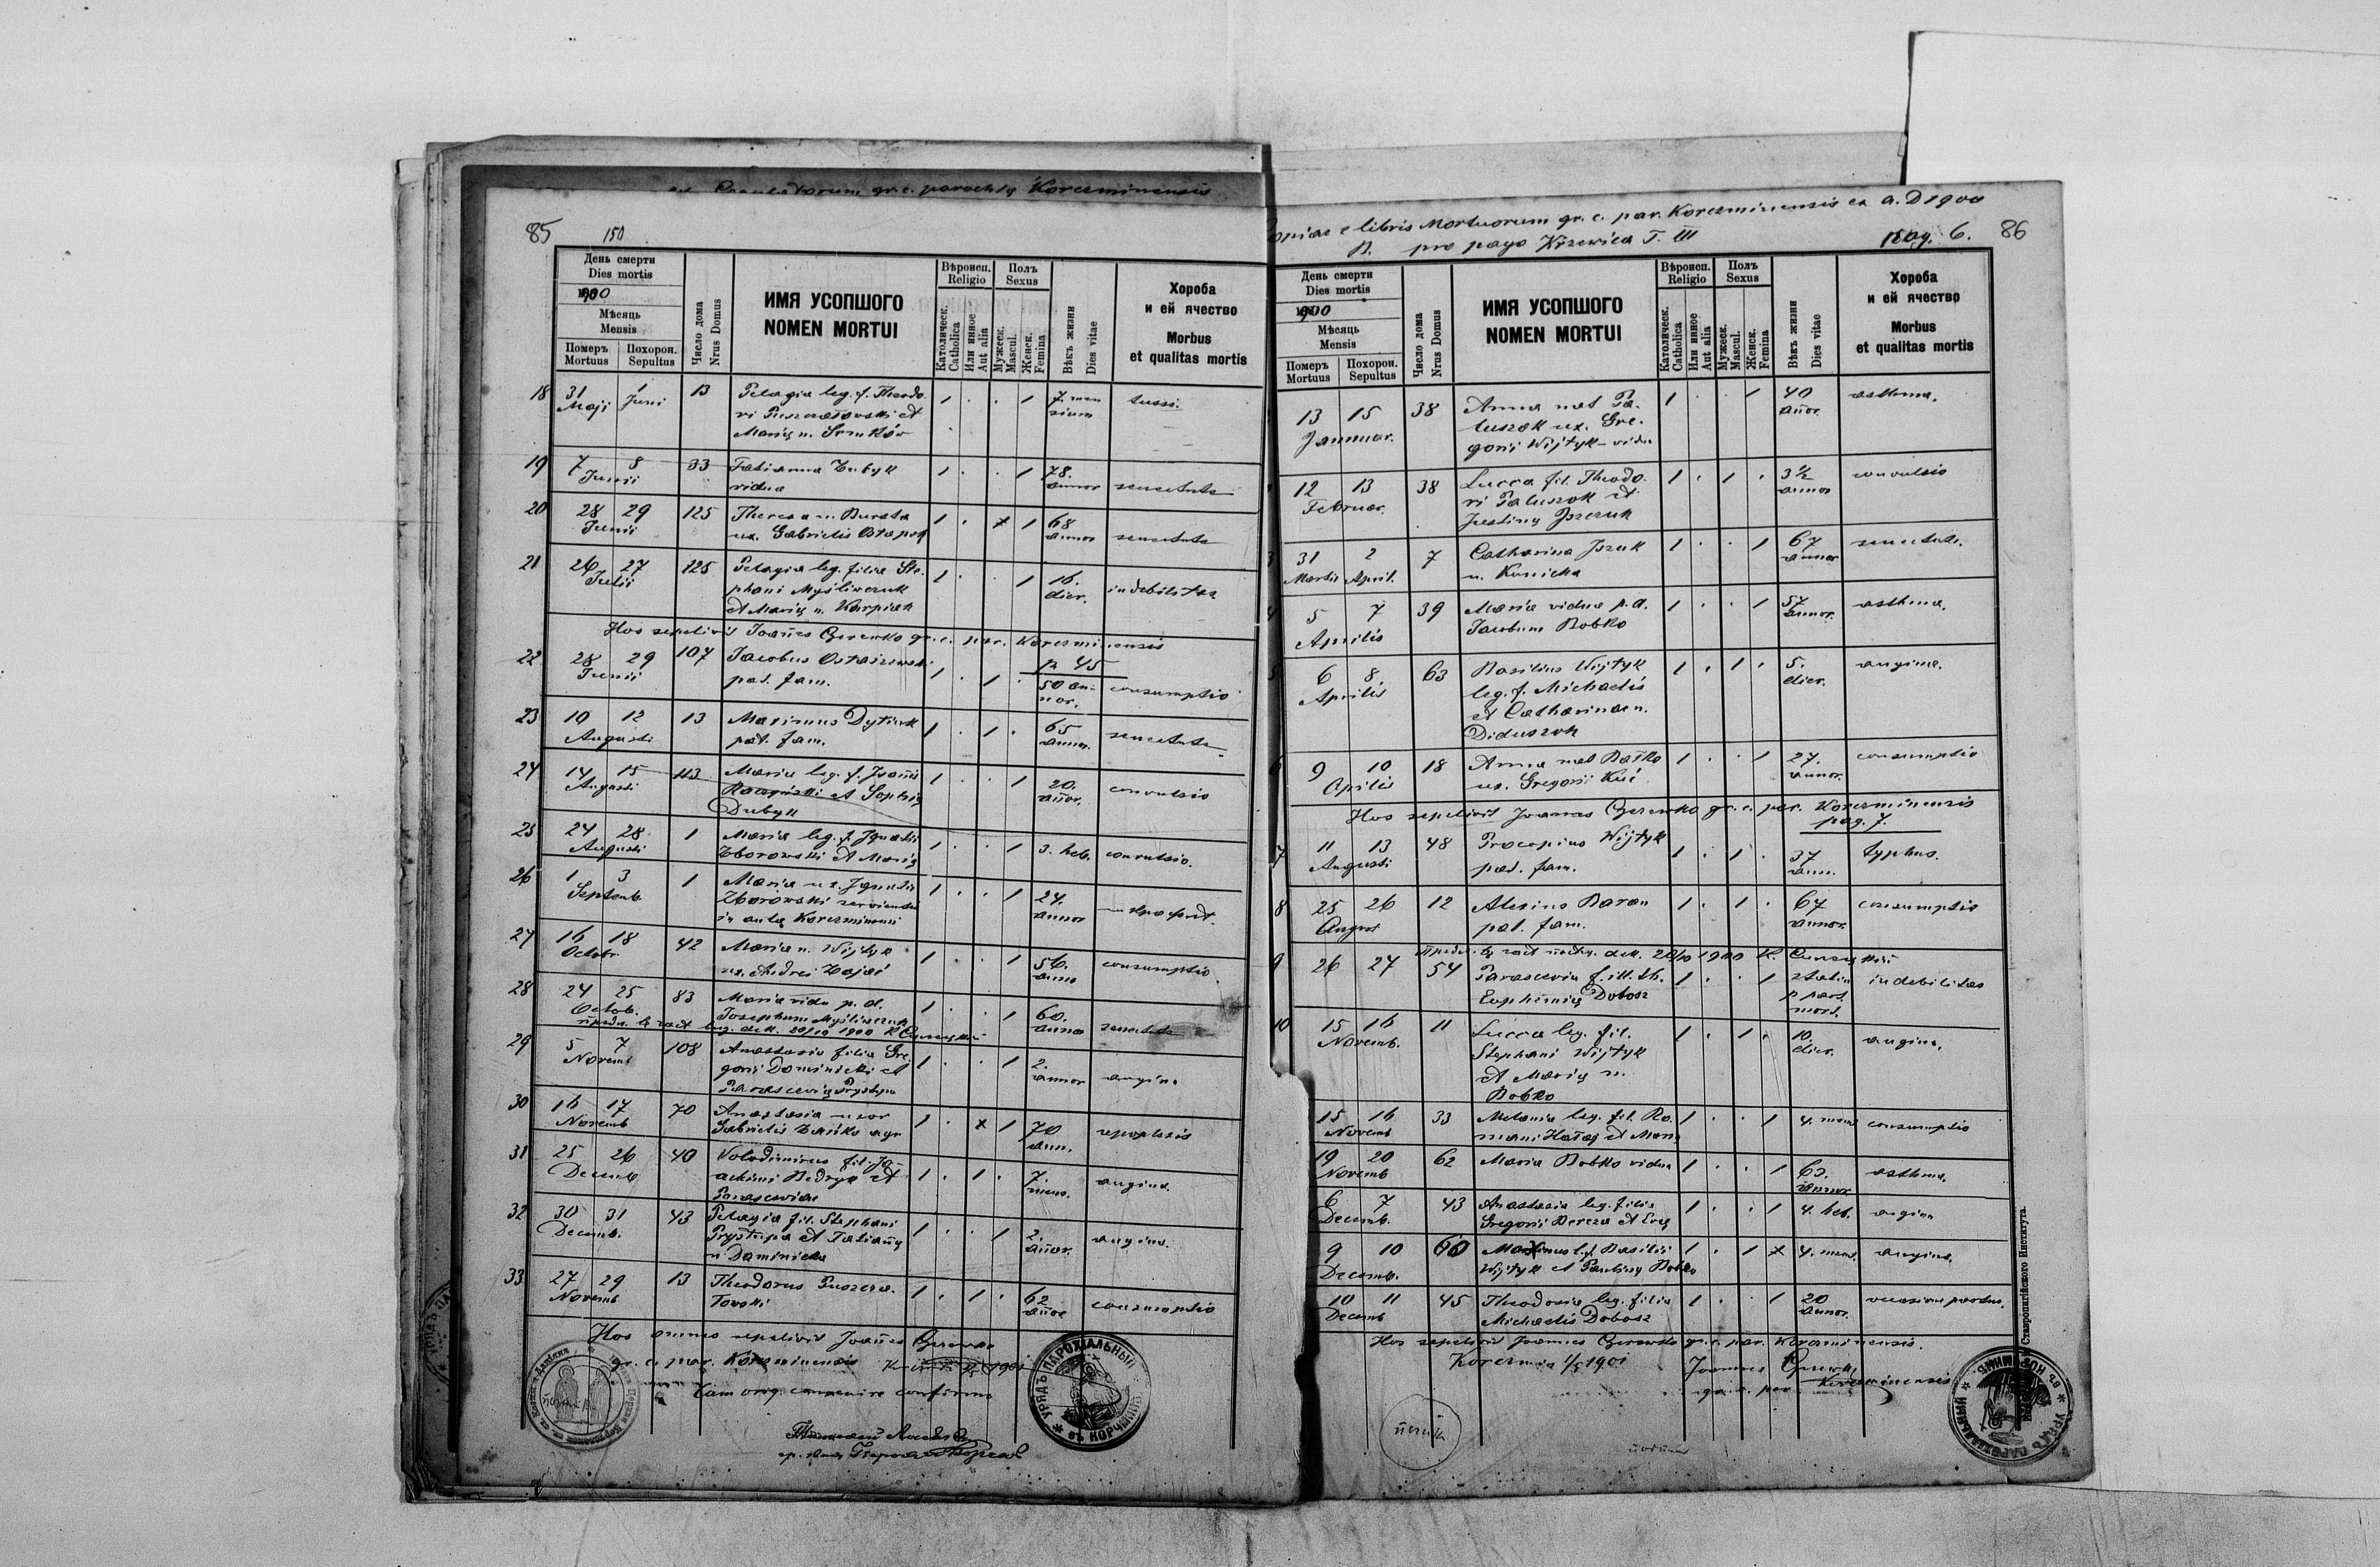 gr. c. parochiy Korczminensis
85
150
День смерти
Dies mortis
1900
Мѣсяць
Mensis
Померъ
Mortuus
Похорон.
Sepultus
Число дома
Nrus Domus
ИМЯ УСОПШОГО
NOMEN MORTUI
Вѣроисп.
Religio
Католическ.
Catholica
Или инное
Aut alia
Полъ
Sexus
Мужеск.
Mascul.
Женск.
Femina
Вѣкъ жизни
Dies vitae
Хороба
и ей ячество
Morbus
et qualitas mortis
18 31 Maji 1 Juni 13 Pelagia leg. f. Theodo- 1 . . 1 7. men tussi.
ri et sium
Mariy n. Senków
19 7 8 Junii 33 Tatianna 1 . . 1 78. annor senectute
vidua
20 28 29 Junii 125 Theresa n. Bursta 1 . x 1 68 annor senectute
ux. Gabrielis Ostapek
21 26 27 Julii 125 Pelagia leg. filia Ste- 1 . . 1 16. dier. indebilitas
phani Myśliwczuk
et Mariy n. Karpiak
Hos sepelivit Joañes Czerewko gr. c. par. Korczminensis
22 28 29 Junii 107 Jacobus Ostaszewski 1 . 1 . 45 consumptio
pat. fam. 50 an-
nor.
23 10 12 Augusti 13 Maximus Dytiuk 1 . 1 . 65 annor. senectute
pat. fam.
24 14 15 Augusti 113 Maria leg. f. Joañis 1 . . 1 20. añor. convulsio
et Sophiy
Dubyk
25 24 28 Augusti 1 Maria leg. f. Ignatii 1 . . 1 3. heb. convulsio.
Zborowski et Mariy
26 1 3 Septemb. 1 Maria ux. Ignatii 1 . . 1 24. annor
Zborowski servientis
in aula Korczminensi
27 16 18 Octobr. 42 Maria n. Wijtyk 1 . . 1 56. anno consumptio
ux. Andrei Zajać
28 24 25 Octob. 83 Maria vidu p. d. 1 . . 1 60. annor senectute
Josephum Myśliwczuk
29 5 7 Novemb 108 Anastasia filia Gre- 1 . . 1 2. annor angina
gorii Dominicki et
Parasceviy Prystupa
30 16 17 Novemb 70 Anastasia uxor 1 . x 1 70 ann. apoplexis
Gabrielis agr
31 25 26 Decemb 40 Volodimirus fil. Jo- 1 . 1 . 7. mens. angina.
achimi Bedryk et
Parasceviae
32 30 31 Decemb. 43 Pelagia fil. Stephani 1 . . 1 2. añor. angina.
Prystupa et Tatiañy
n Dominicka
33 27 29 Novemb 13 Theodorus Puszcza- 1 . 1 . 62 añor consumptio
towski
Hos omnes sepelivit Joañes Czerewko
gr. c. par. Korczminensis 1901
Cum orig. convenire confirmo
УРЯДЪ ПАРОХІАЛЬНЫЙ въ КОРЧМИНѢ
Copiae e libris Mortuorum gr. c. par. Korczminensis ex a. D 1900
pro pago Krzewica T. III
pag. 6.
86
День смерти
Dies mortis
1900
Мѣсяць
Mensis
Померъ
Mortuus
Похорон.
Sepultus
Число дома
Nrus Domus
ИМЯ УСОПШОГО
NOMEN MORTUI
Вѣроисп.
Religio
Католическ.
Catholica
Или инное
Aut alia
Полъ
Sexus
Мужеск.
Mascul.
Женск.
Femina
Вѣкъ жизни
Dies vitae
Хороба
и ей ячество
Morbus
et qualitas mortis
13 15 Jannuar. 38 Anna nat Pa- 1 . . 1 40 añor. asthma.
luszok ux. Gre-
gorii Wijtyk - vidu
12 13 Februar. 38 Lucca fil. Theodo- 1 . 1 . 3 1/2 annor convulsio
ri Paluszok et
Justiny Jszczuk
3 31 Martii 2 April. 7 Catharina Jszuk 1 . . 1 67 annor senectute.
n. Kunicka
4 5 7 Aprilis 39 Maria vidua p. d. 1 . . 1 57 annor. asthma.
Jacobum Bobko
5 6 8 Aprilis 63 Basilius Wijtyk 1 . 1 . 5. dier. angina.
leg. f. Michaelis
et Catharinae n.
Diduszok
6 9 10 Aprilis 18 Anna nat Bałko 1 . . 1 27. annor. consumptio
ux. Gregorii Kuć
Hos sepelivit Joannes Czerewko gr. c. par. Korczminensis
pag. 7.
7 11 13 Augusti 48 Procopius Wijtyk 1 . 1 . 37 ann. typhus.
pat. fam.
8 25 26 August 12 Alexius Baran 1 . 1 . 67 annor. consumptio
pat. fam.
9 26 27 54 Parascevia f. ill. th. 1 . . 1 statim indebilitas
Euphimiy Dobosz p. part.
mort.
10 15 16 Novemb. 11 Lucca leg. fil. 1 . 1 . 10. dier. angina.
Stephani Wijtyk
et Mariy n.
Bobko
15 16 Novemb 33 Melania leg. fil. Ro- 1 . . 1 4. mens consumptio
mani et Maria
19 20 Novemb 62 Maria Bobko vidua 1 . . 1 asthma.
6 7 Decemb. 43 Anastasia leg. filia 1 . . 1 4. heb. angina
Gregorii Bereza et Evy
9 10 Decemb. 60 Maximus leg Basilii 1 . 1 x 4. mens. angina.
Wijtyk et Pauliny Bobko
10 11 Decemb 45 Theodosia leg. filia 1 . . 1 20 annor. occasione partus.
Michaelis Dobosz
Hos sepelivit Joannes Czerewko gr. c. par. Korczminensis.
Korczmin 1901 Joannes Czerewko
Korczminensis
Ставропигійского Института.